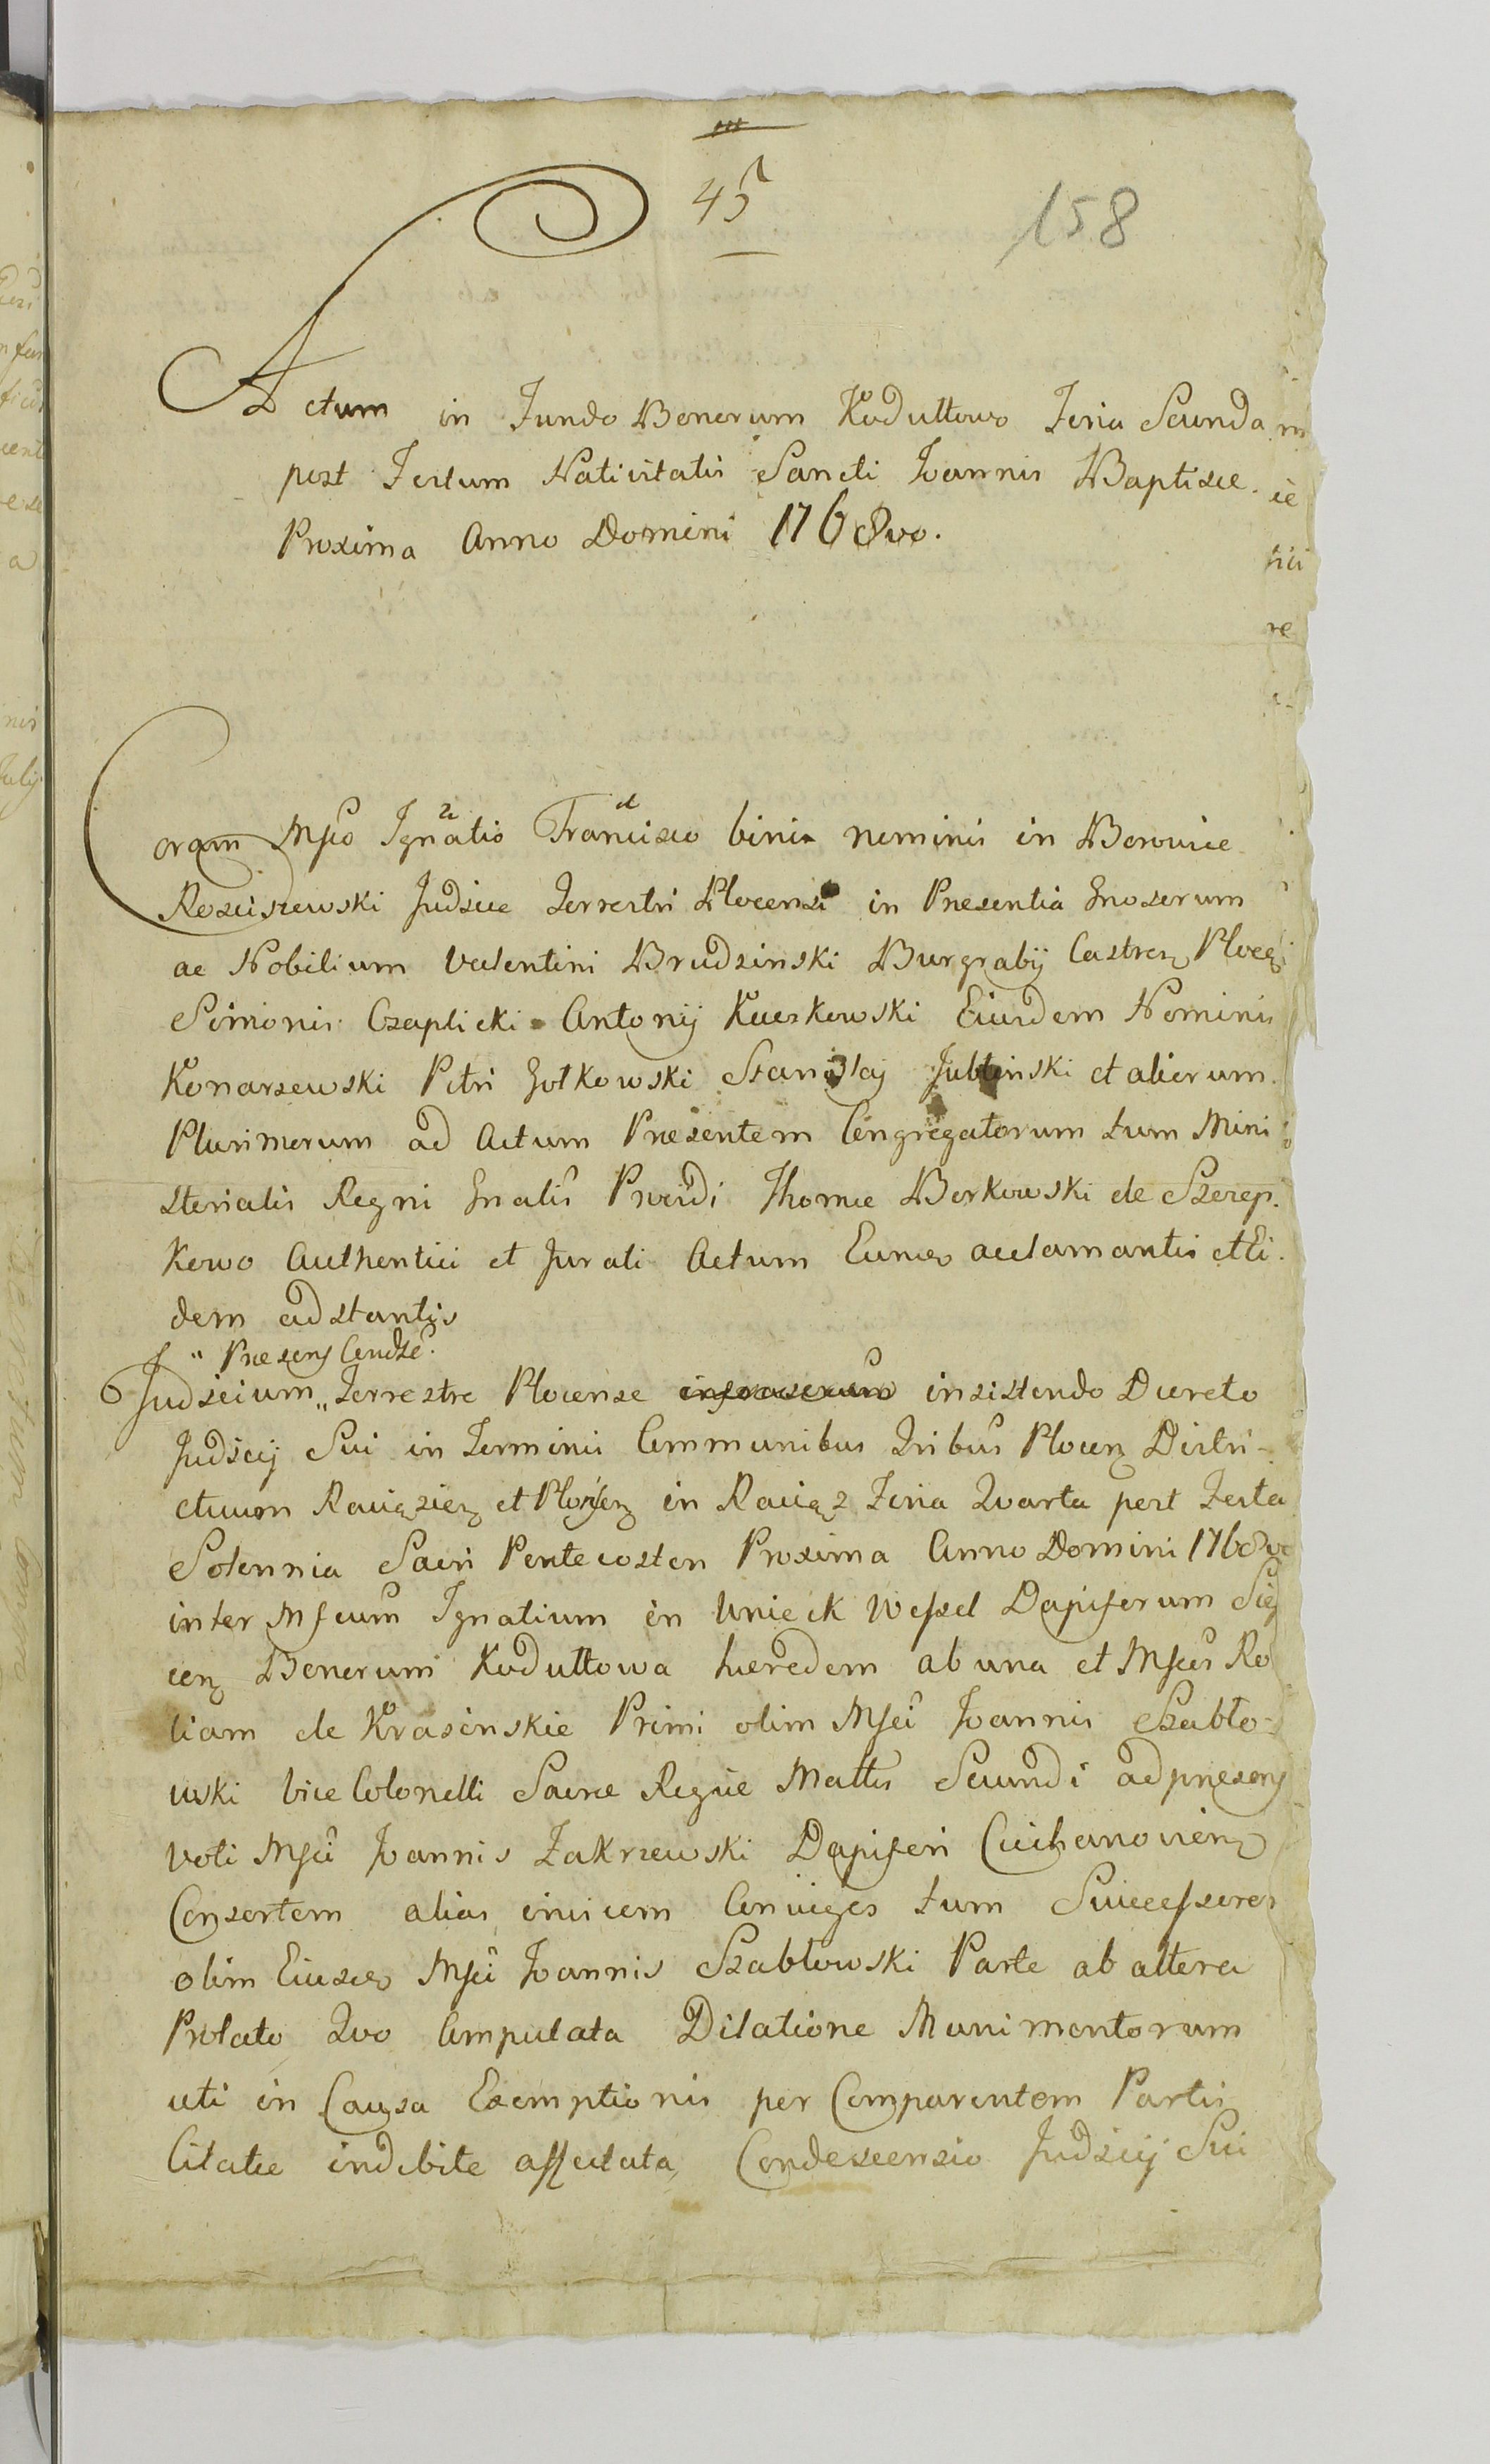 45
158
Actum in Fundo Bonorum Koduttowo Feria Secunda
post Festum Nativitatis Sancti Joannis Baptisæ
Proxima Anno Domini 1768vo.
Coram Mfco Ignatio Francisco binis nominis in Borowice
Rosciszewski Judice Terrestri Plocensi in Presentia Gnosorum
ac Nobilium Valentini Brudzinski Burgrabij Castren Plocen
Simonis Czaplicki Antonij Kuczkowski Eiusdem Nominis
Konarzewski Petri Gotkowski Stanislaj et aliorum
Plurimorum ad Actum Presentem Congregatorum tum Mini
sterialis Regni Gnalis Providi Thomæ Borkowski de Szerep.
kowo Authentici et Jurati Actum Eund acclamantis et Ei
dem adstantis
" Præsens Condse.
Judicium „ Terrestre Plocense insistendo Decreto
Judicij Sui in Terminis Communibus Tribus Plocen Distri-
ctuum Raciązien et Plonsen in Raciąz Feria Qvarta post Festa
Solennia Sacri Pentecosten Proxima Anno Domini 1768vo
inter Mfcum Ignatium in Unieck Wessel Dapiferum
cen Bonorum Koduttowa hæredem ab una et Mfcas Ro
liam de Krasinskie Primi olim Mfci Joannis Szabło-
wski Vice Colonelli Sacræ Regiæ Mattis Secundi ad præsens
Voti Mfci Joannis Zakrzewski Dapiferi Ciechanovien
Consortem alias invicem Conjuges tum Successores
olim Eiusd Mfci Joannis Szablowski Parte ab altera
Prolato Qvo Amputata Dilatione Munimentorum
uti in Causa Exemptionis per Comparentem Partis
Citatæ indebite affectata Condescensio Judicij Sui